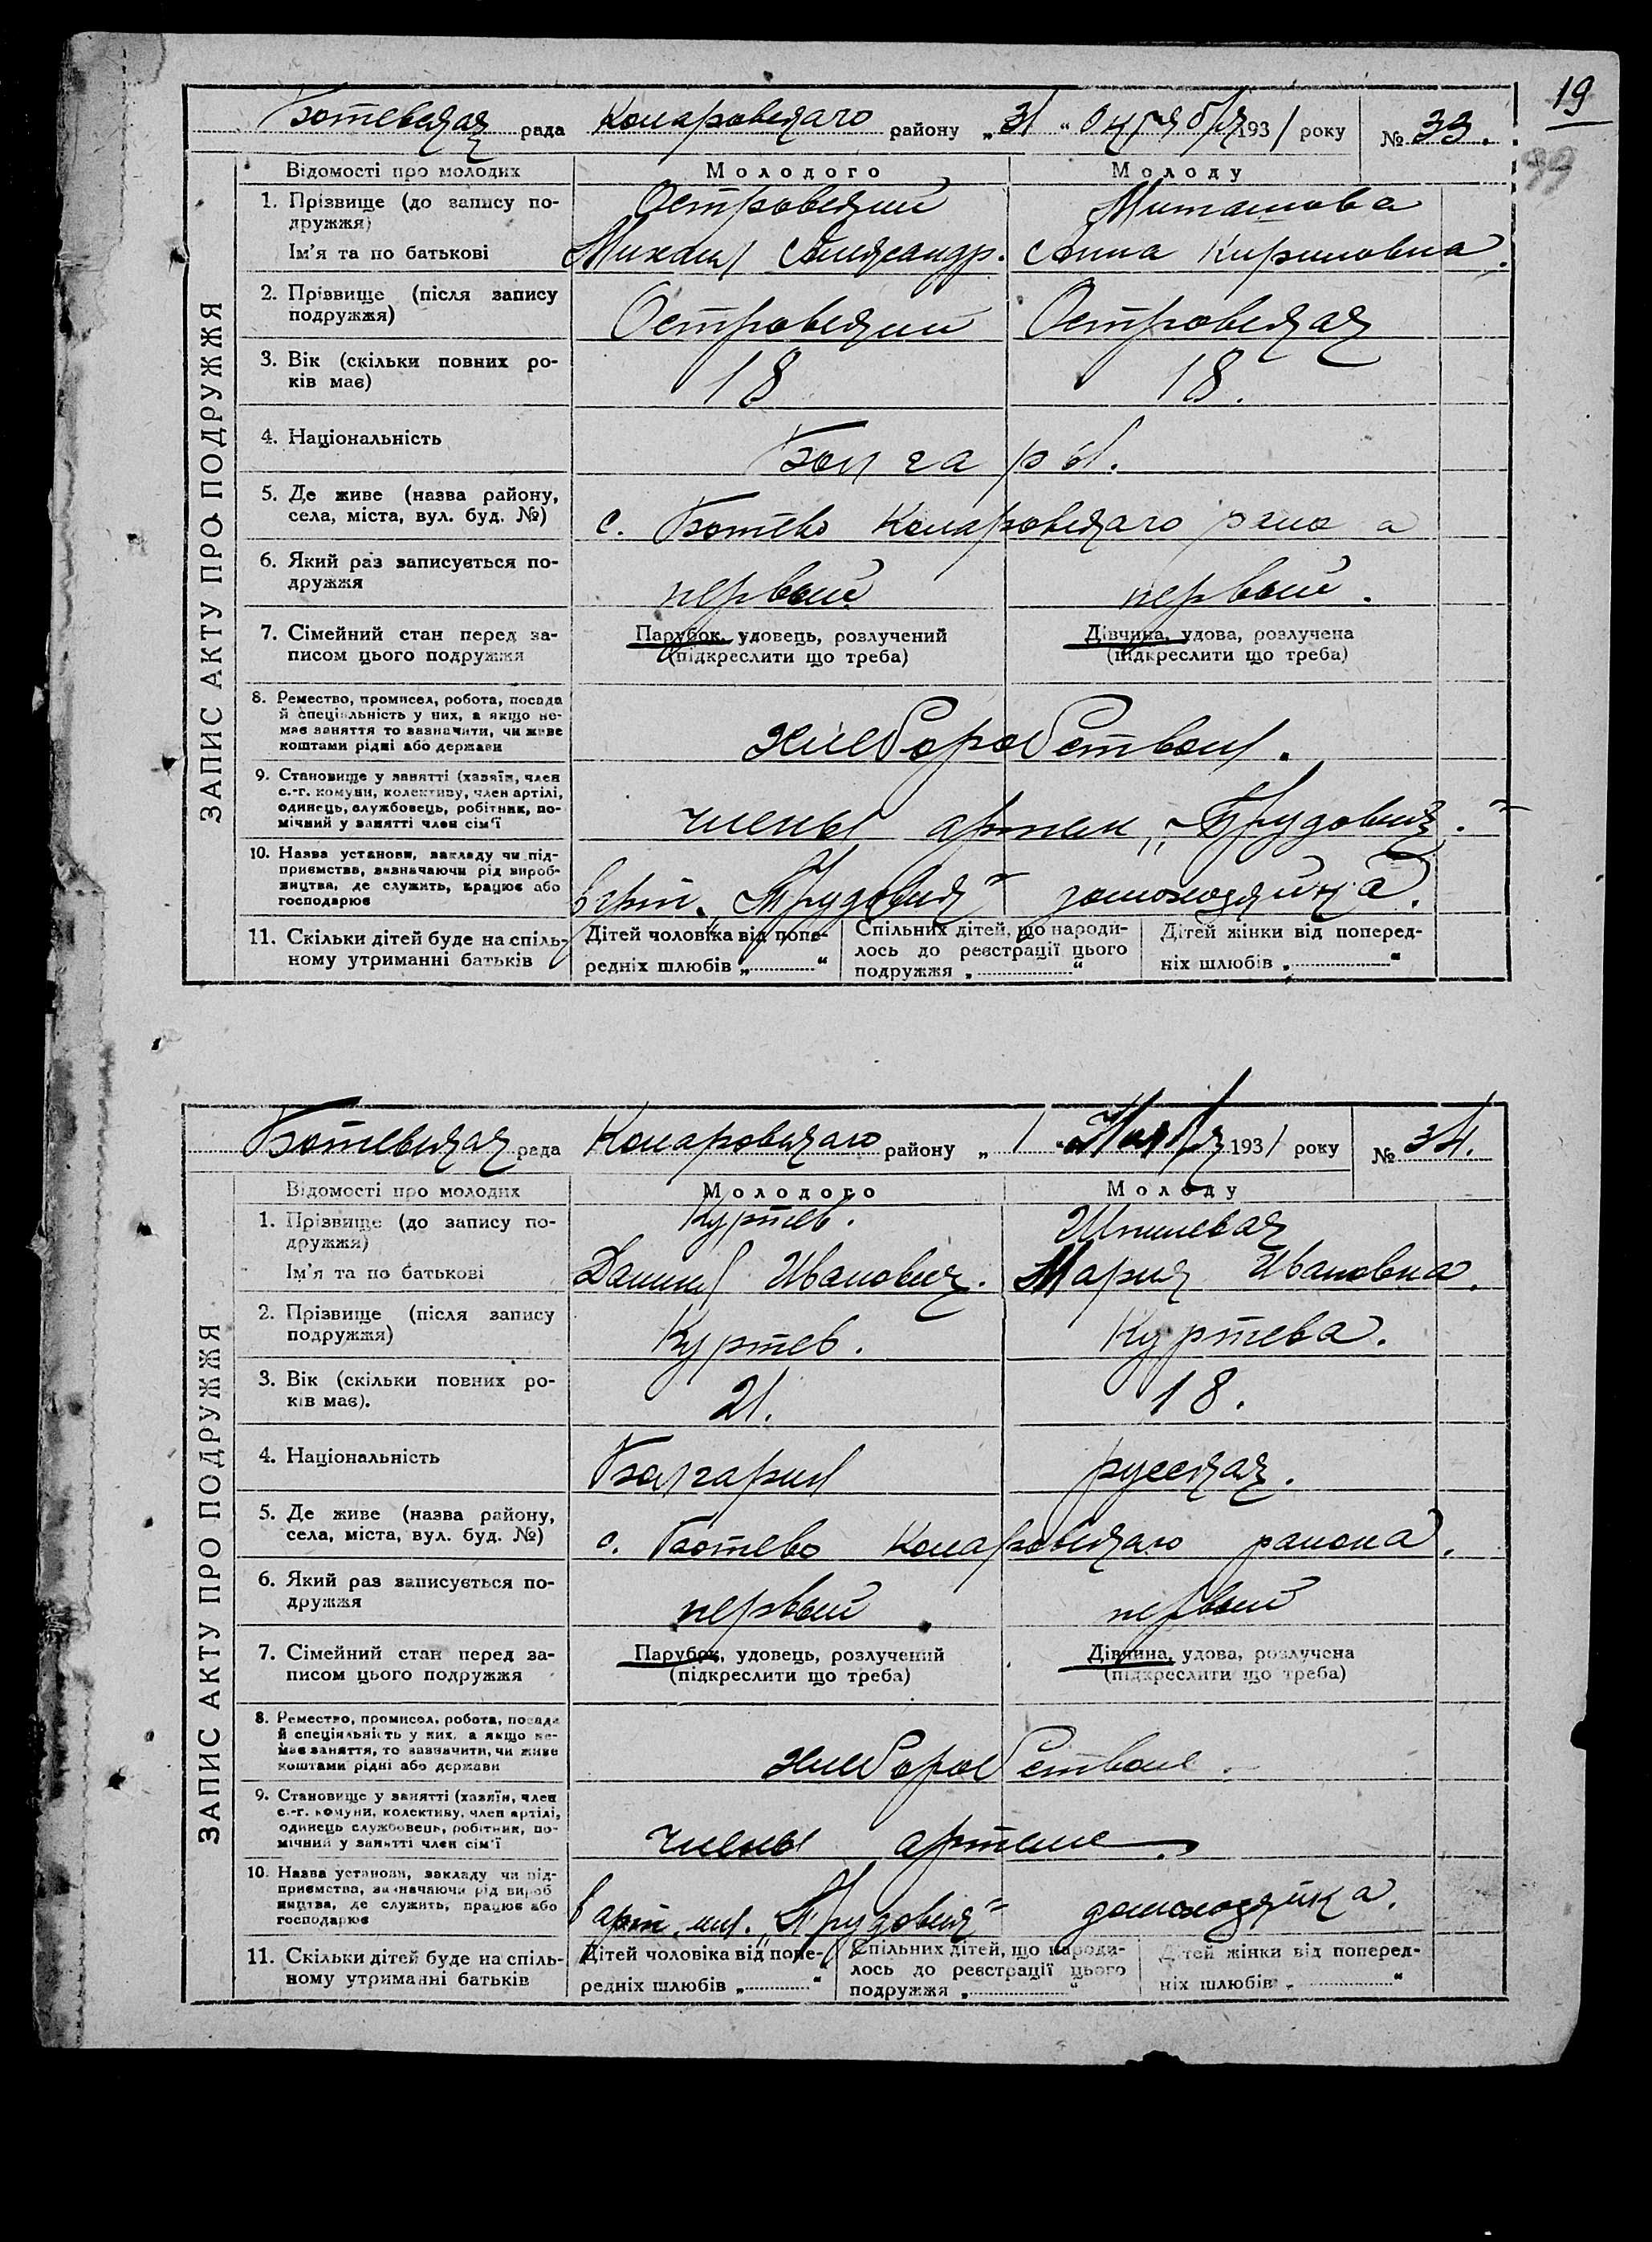 19
Ботевская рада Коларовскаго району „31“ Октября 1931 року № 33.
39
ЗАПИС АКТУ ПРО ПОДРУЖЖЯ
Відомості про молодих Молодого Молоду
1. Прізвище (до запису по- Островский Миташова
дружжя)
Ім'я та по батькові Михаил Александр. Анна Кириловна.
2. Прізвище (після запису
подружжя) Островский Островская
3. Вік (скільки повних ро-
ків має) 18 18.
4. Національність Болгары.
5. Де живе (назва району,
села, міста, вул. буд. №) с. Ботево Коларовскаго раиона
6. Який раз записується по-
дружжя первый первый.
7. Сімейний стан перед за- Парубок, удовець, розлучений Дівчина, удова, розлучена
писом цього подружжя (підкреслити що треба) (підкреслити що треба)
8. Ремество, промисел, робота, посада
й спеціяльність у них, а якщо не-
має заняття то зазначити, чи живе
коштами рідні або держави хлеборобством.
9. Становище у занятті (хазяїн, член
с.-г. комуни, колективу, член артілі,
одинець, службовець, робітник, по-
мічний у занятті член сім'ї члены артели „Трудовик.“
10. Назва установи, закладу чи під-
приємства, зазначаючи рід вироб-
ництва, де служить, працює або
господарює в арт. „Трудовик“ домохозяйка.
11. Скільки дітей буде на спіль- Дітей чоловіка від попе- Спільних дітей, що народи- Дітей жінки від поперед-
ному утриманні батьків редніх шлюбів „ “ лось до реєстрації цього ніх шлюбів „ “
подружжя „ “
Ботевская рада Коларовскаго району „1“ Ноября 1931 року № 34.
ЗАПИС АКТУ ПРО ПОДРУЖЖЯ
Відомості про молодих Молодого Молоду
1. Прізвище (до запису по- Куртев.
дружжя)
Ім'я та по батькові Даниил Иванович. Мария Ивановна.
2. Прізвище (після запису
подружжя) Куртев. Куртева.
3. Вік (скільки повних ро-
ків має). 21. 18.
4. Національність Болгарин русская.
5. Де живе (назва району,
села, міста, вул. буд. №) с. Ботево Коларовскаго раиона.
6. Який раз записується по-
дружжя первый первый
7. Сімейний стан перед за- Парубок, удовець, розлучений Дівчина, удова, розлучена
писом цього подружжя (підкреслити що треба) (підкреслити що треба)
8. Ремество, промисел, робота, посада
й спеціяльність у них, а якщо не-
має заняття, то зазначити, чи живе
коштами рідні або держави хлеборобством.
9. Становище у занятті (хазяїн, член
с.-г. комуни, колективу, член артілі,
одинець службовець, робітник, по-
мічний у занятті член сім'ї члены артели
10. Назва установи, закладу чи під-
приємства, зазначаючи рід вироб
ництва, де служить, працює або
господарює в арт. „Трудовик“ домохозяйка.
11. Скільки дітей буде на спіль- Дітей чоловіка від попе- Спільних дітей, що народи- Дітей жінки від поперед-
ному утриманні батьків редніх шлюбів „ “ лось до реєстрації цього ніх шлюбів „ “
подружжя „ “